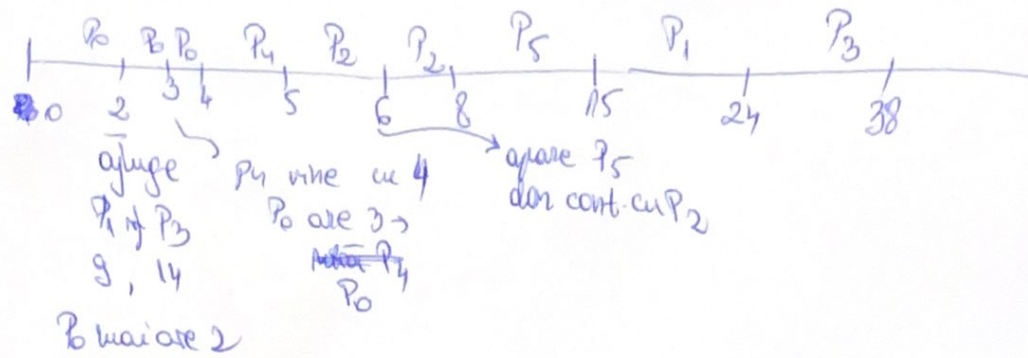 P0 P0 P0 P4 P2 P2 P5 P1 P3
0 2 3 4 5 6 8 15 24 38
ajunge
P1 și P3
9, 14
P0 mai are 2
P4 vine cu 4
P0 are 3 →
P4
P0
apare P5
dar cont. cu P2